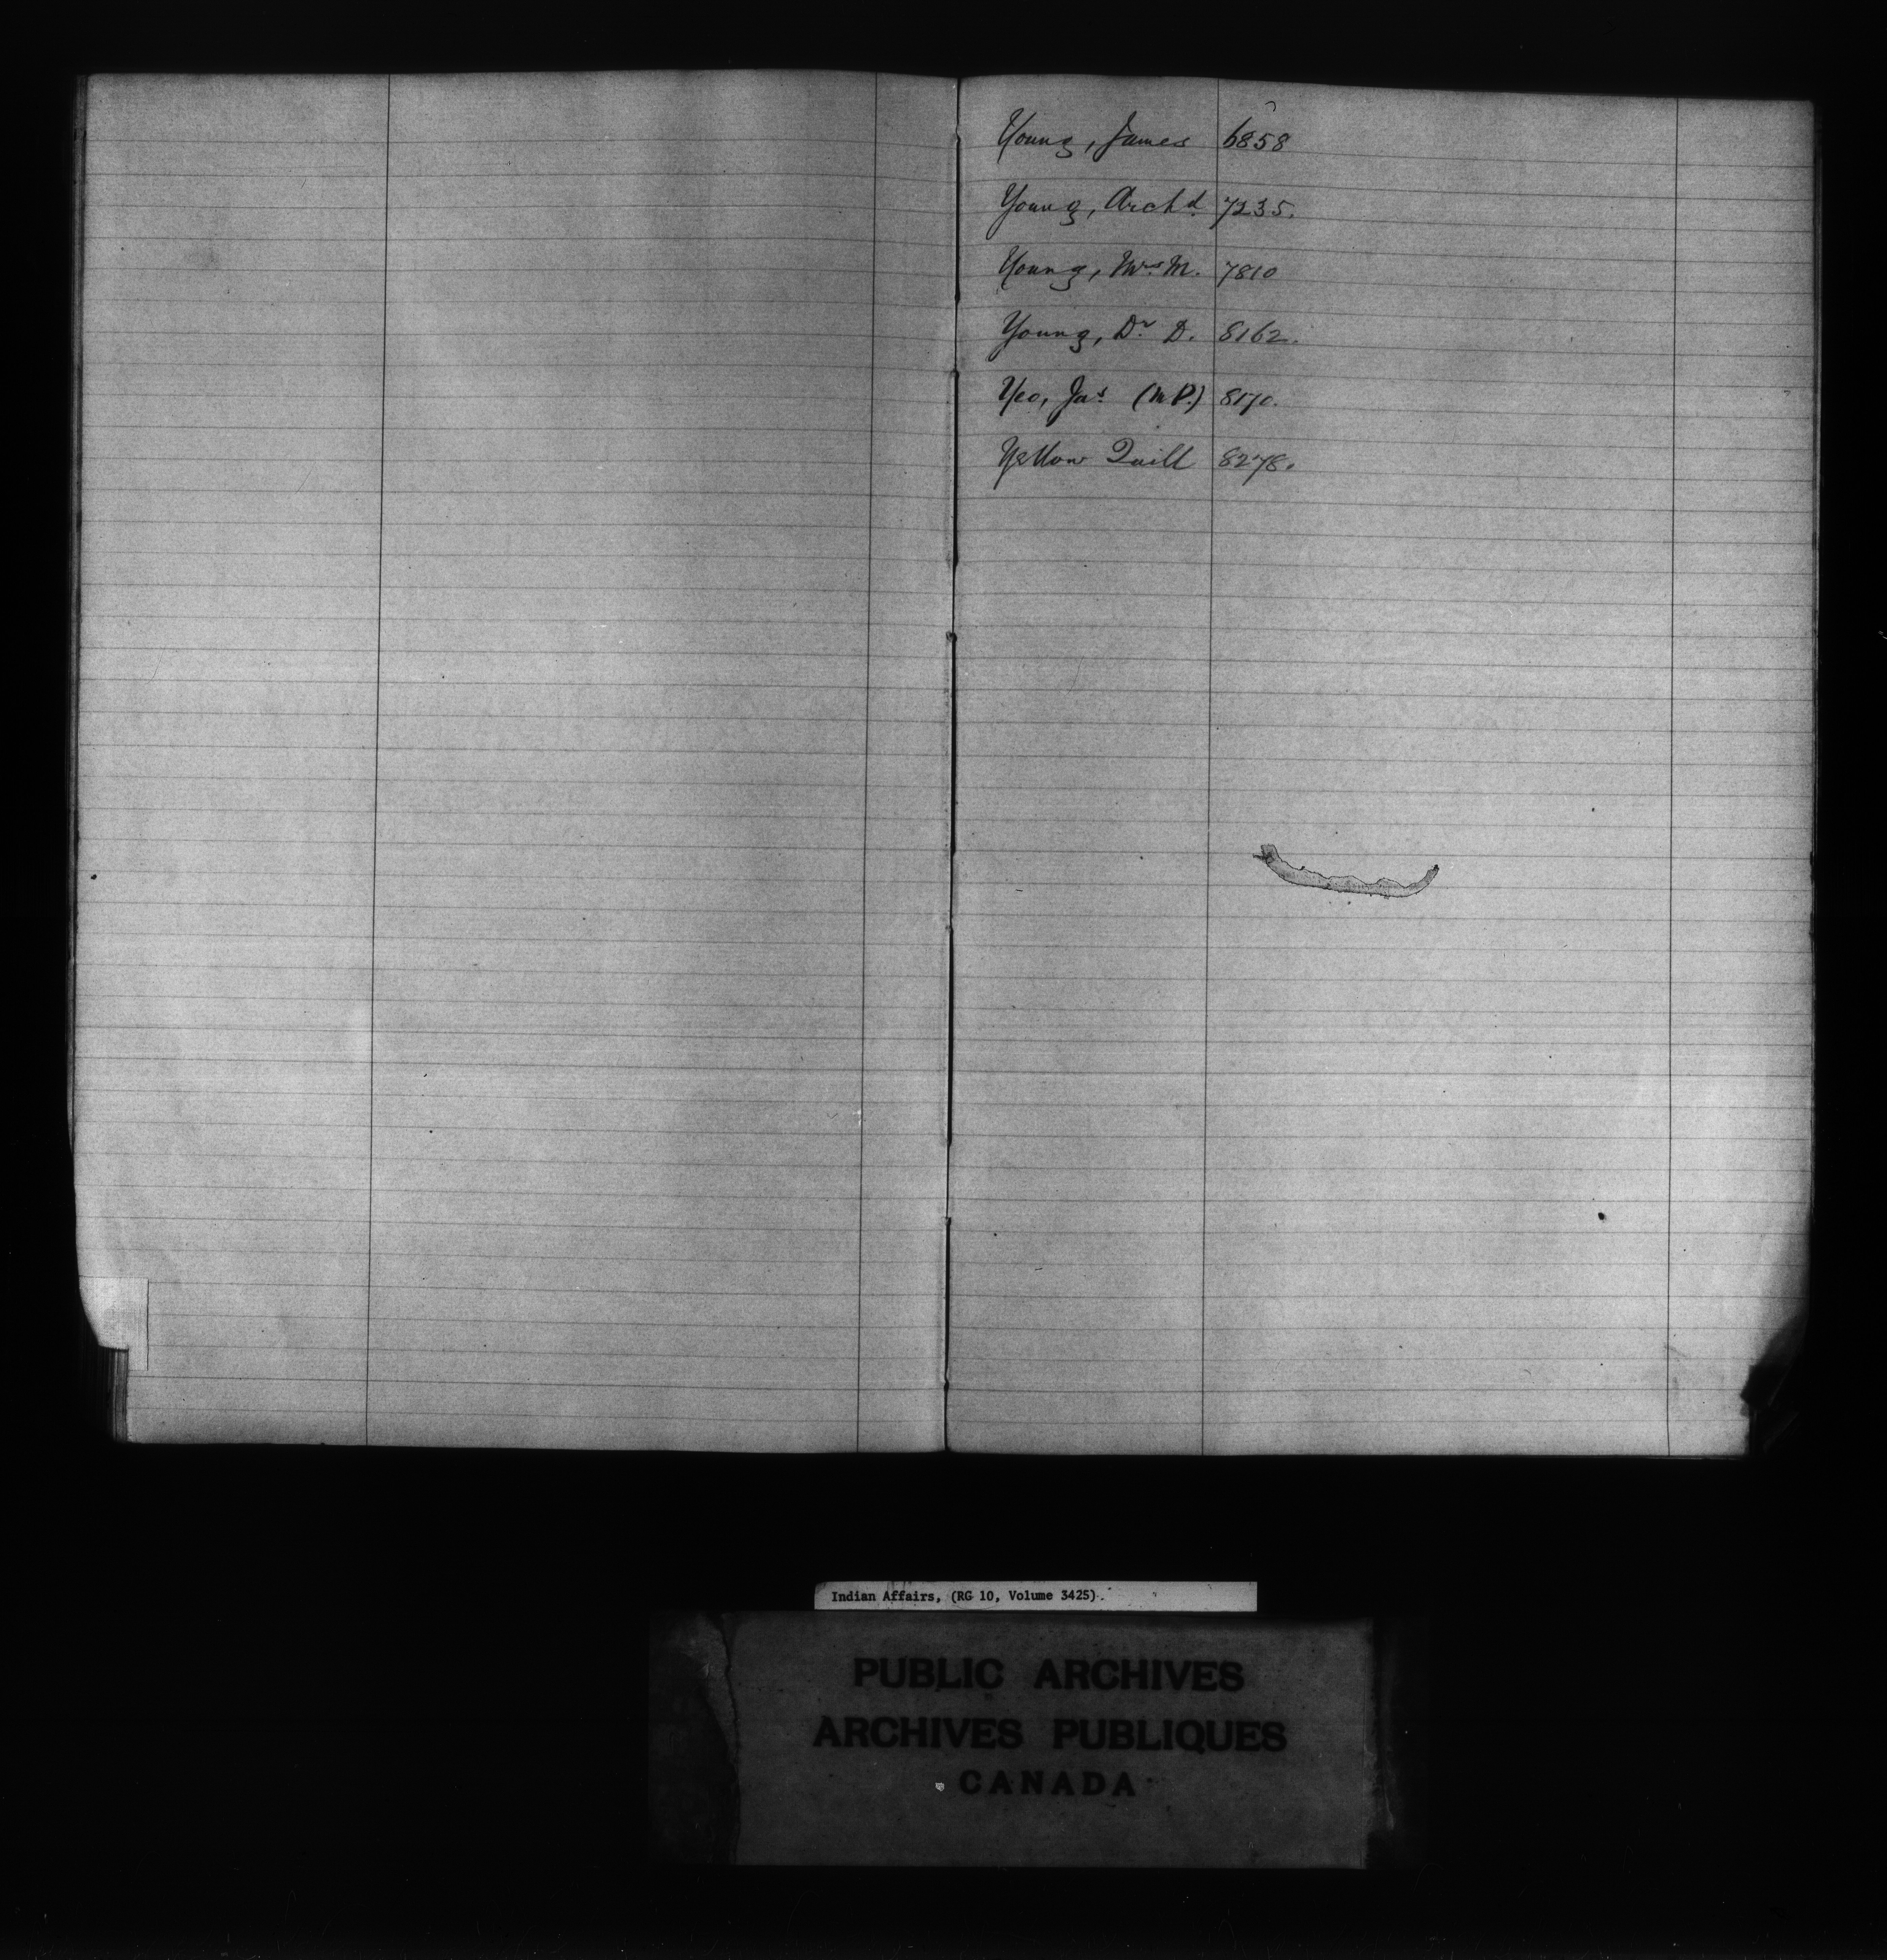 Young, James 6858
Young, Archd. 7235.
Young, Mrs. M. 7810
Young, Dr. D. 8162.
Yeo, Jas. (M.P.) 8170.
Yellow Quill 8278.
Indian Affairs, (RG 10, Volume 3425).
PUBLIC ARCHIVES
ARCHIVES PUBLIQUES
CANADA